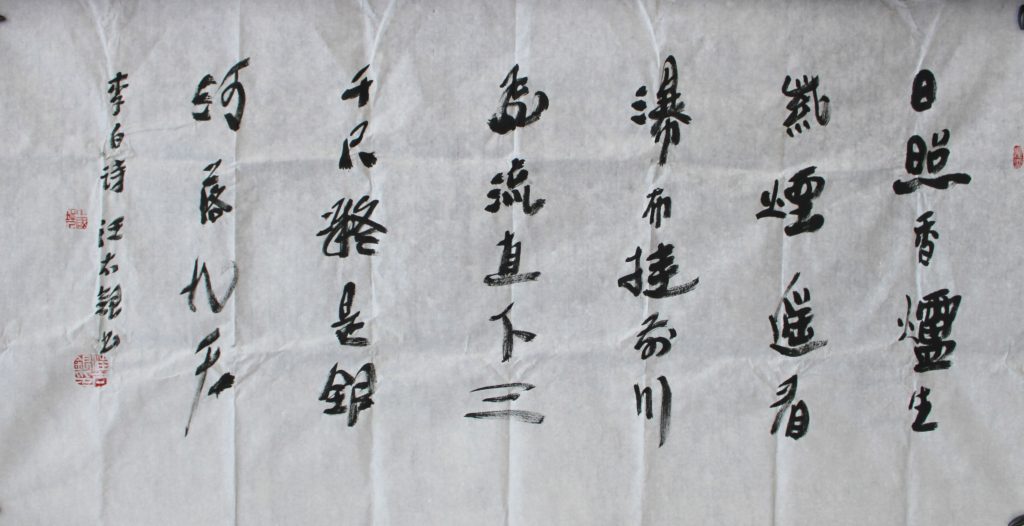 日照香爐生
紫煙遥看
瀑布挂前川
飛流直下三
千尺疑是銀
河落九天
李白诗 汪太书